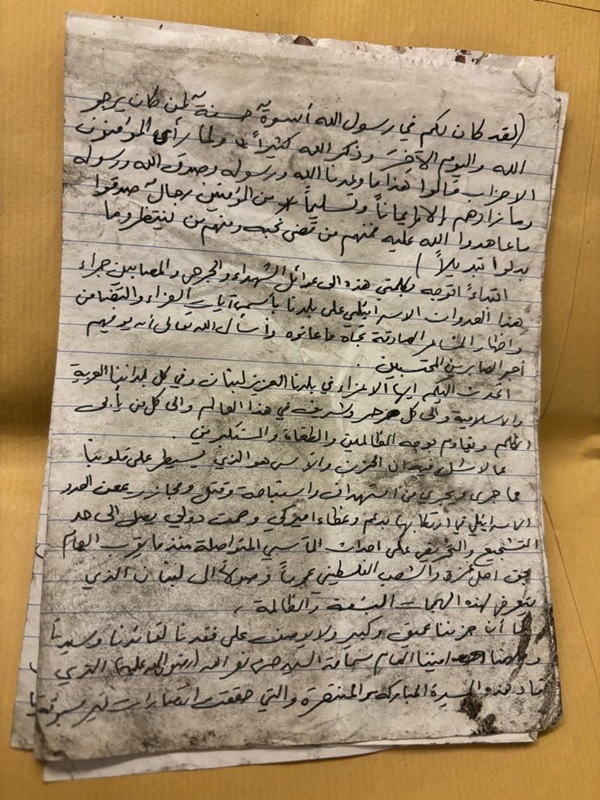 (لقد كان لكم في رسول الله أسوةٌ حسنةٌ لمن كان يرجو
الله واليوم الآخر وذكر الله كثيراً * ولما رأى المؤمنون
الاحزاب قالوا هذا ما وعدنا الله ورسوله وصدق الله ورسوله
وما زادهم إلا إيماناً وتسليماً * من المؤمنين رجالٌ صدقوا
ما عاهدوا الله عليه فمنهم من قضى نحبه ومنهم من ينتظر وما
بدلوا تبديلاً)
ابتداءً اتوجه بكلمتي هذه الى عوائل الشهداء والجرحى والمصابين جراء
هذا العدوان الاسرائيلي على بلدنا بأسمى آيات العزاء والتضامن
واظهار المشاعر الصادقة تجاه ما عانوه وأسأل الله تعالى أن يوفيهم
أجر الصابرين المحتسبين.
أتحدث اليكم ايها الأعزاء في بلدنا العزيز لبنان وفي كل بلداننا العربية
والاسلامية والى كل حر وشريف في هذا العالم والى كل من يأبى
الظلم ويقاوم بوجه الظالمين والطغاة والمستكبرين.
مما لا شك فيه ان الحزن والأسى هو الذي يسيطر على قلوبنا
مما جرى ويجري من استهداف واستباحة وقتل ومجازر يمعن العدو
الاسرائيلي في ارتكابها بدعم وغطاء اميركي وصمت دولي يصل الى حد
التشجيع والتحريض على احداث المآسي المتواصلة منذ ما يقرب العام
بحق اهل غزة والشعب الفلسطيني عموماً وصولاً الى لبنان الذي
يتعرض لهذه الهجمات البشعة والظالمة،
كما أن حزننا عميق وكبير ولا يوصف على فقدنا لقائدنا وسيدنا
اميننا العام سماحة السيد حسن نصر الله (رضوان الله عليه) الذي
قاد هذه المسيرة المباركة والمنتصرة والتي حققت انتصارات غير مسبوقة